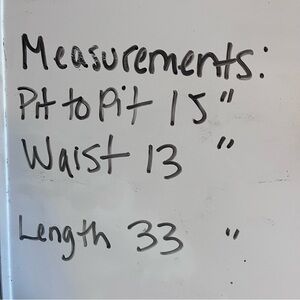 Measurements:
Pit to Pit 15"
Waist 13 "
Length 33 "